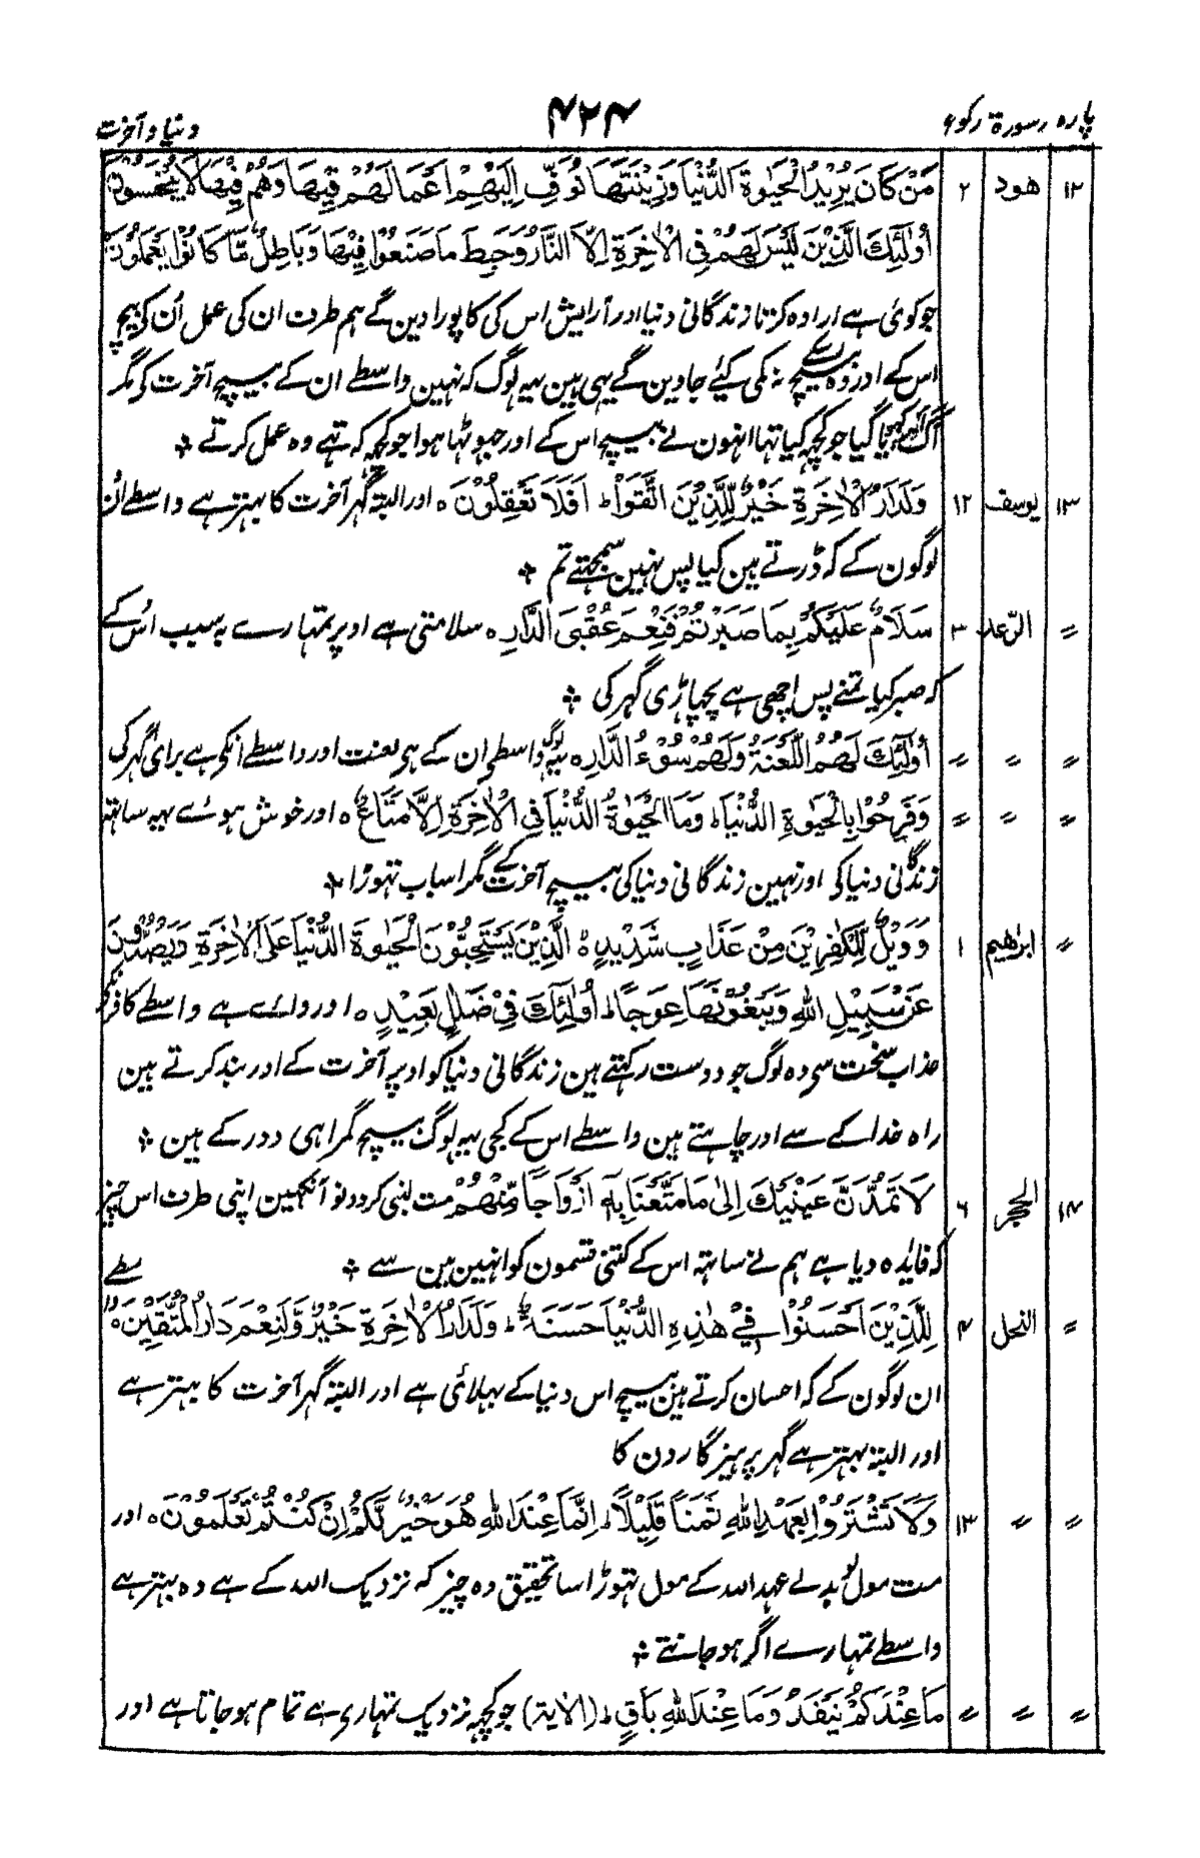 پارہ سورۃ رکوع ۴۲۴ دنیا و آخرت
۱۲ ھود ۲ مَنْ كَانَ يُرِيْدُ الْحَيٰوةَ الدُّنْيَا وَزِيْنَتَهَا نُوَفِّ اِلَيْهِمْ اَعْمَالَهُمْ فِيْهَا وَهُمْ فِيْهَا لَا يُبْخَسُوْنَ
اُولٰٓئِكَ الَّذِيْنَ لَيْسَ لَهُمْ فِي الْاٰخِرَةِ اِلَّا النَّارُ وَحَبِطَ مَا صَنَعُوْا فِيْهَا وَبَاطِلٌ مَّا كَانُوْا يَعْمَلُوْنَ
جو کوئی ہے ارادہ کرتا زندگانی دنیا اور آرایش اس کی کا پورا دین گے ہم طرف ان کی عمل اُن کے بیچ
اس کے اور وہ بیچ اسکے نہ کمی کیئے جاوین گے یہی ہین یہ لوگ کہ نہین واسطے ان کے بیچ آخرت کے مگر
آگ اور کھویا گیا جو کچھ کیا تھا انہون نے بیچ اس کے اور جھوٹھا ہوا جو کچھ کہ تھے وہ عمل کرتے ؞
۱۳ یوسف ۱۲ وَلَدَارُ الْاٰخِرَةِ خَيْرٌ لِّلَّذِيْنَ اتَّقَوْا ؕ اَفَلَا تَعْقِلُوْنَ ہ اور البتہ گھر آخرت کا بہتر ہے واسطے اُن
لوگون کے کہ ڈرتے ہین کیا پس نہین سمجھتے تم ؞
〃 الرّعد ۳ سَلَامٌ عَلَيْكُمْ بِمَا صَبَرْتُمْ فَنِعْمَ عُقْبَى الدَّارِ ہ سلامتی ہے اوپر تمہارے بہ سبب اُس کے
کہ صبر کیا تمنے پس اچھی ہے پچھاڑی گھر کی ؞
〃 〃 〃 اُولٰٓئِكَ لَهُمُ اللَّعْنَةُ وَلَهُمْ سُوْٓءُ الدَّارِ ہ یہ لوگ واسطے ان کے ہی لعنت اور واسطے انکی ہے برائی گھر کی
〃 〃 〃 وَفَرِحُوْا بِالْحَيٰوةِ الدُّنْيَا ؕ وَمَا الْحَيٰوةُ الدُّنْيَا فِي الْاٰخِرَةِ اِلَّا مَتَاعٌ ہ اور خوش ہوئے یہہ ساتھ
زندگانی دنیا کی اور نہین زندگانی دنیا کی بیچ آخرت کے مگر اسباب تھوڑا ؞
〃 ابرٰھیم ۱ وَوَيْلٌ لِّلْكٰفِرِيْنَ مِنْ عَذَابٍ شَدِيْدٍ ہ الَّذِيْنَ يَسْتَحِبُّوْنَ الْحَيٰوةَ الدُّنْيَا عَلَى الْاٰخِرَةِ وَيَصُدُّوْنَ
عَنْ سَبِيْلِ اللهِ وَيَبْغُوْنَهَا عِوَجًا ؕ اُولٰٓئِكَ فِيْ ضَلٰلٍۢ بَعِيْدٍ ہ اور وائے ہے واسطے کافرونکے
عذاب سخت سی وہ لوگ جو دوست رکھتے ہین زندگانی دنیا کو اوپر آخرت کے اور بند کرتے ہین
راہ خدا کے سے اور چاہتے ہین واسطے اس کے کجی یہہ لوگ بیچ گمراہی دور کے ہین ؞
۱۴ الحجر ۶ لَا تَمُدَّنَّ عَيْنَيْكَ اِلٰى مَا مَتَّعْنَا بِهٖٓ اَزْوَاجًا مِّنْهُمْ مت لنبی کر دونو آنکھین اپنی طرف اس چیز
کہ فایدہ دیا ہے ہم نے ساتھ اس کے کتنی قسمون کو انہین مین سے ؞ واسطے
〃 النحل ۴ لِلَّذِيْنَ اَحْسَنُوْا فِيْ هٰذِهِ الدُّنْيَا حَسَنَةٌ ؕ وَلَدَارُ الْاٰخِرَةِ خَيْرٌ وَلَنِعْمَ دَارُ الْمُتَّقِيْنَ ہ
ان لوگون کے کہ احسان کرتے ہین بیچ اس دنیا کے بہلائی ہے اور البتہ گھر آخرت کا بہتر ہے
اور البتہ بہتر ہے گھر پرہیزگارون کا
〃 〃 ۱۳ وَلَا تَشْتَرُوْا بِعَهْدِ اللهِ ثَمَنًا قَلِيْلًا ؕ اِنَّمَا عِنْدَ اللهِ هُوَ خَيْرٌ لَّكُمْ اِنْ كُنْتُمْ تَعْلَمُوْنَ ہ اور
مت مول لو بدلے عہد اللہ کے مول تھوڑا سا تحقیق وہ چیز کہ نزدیک اللہ کے ہے وہ بہتر ہے
واسطے تمہارے اگر ہو جانتے ؞
〃 〃 〃 مَا عِنْدَكُمْ يَنْفَدُ وَمَا عِنْدَ اللهِ بَاقٍ ؕ (الاٰیۃ) جو کچھ نزدیک تمہاری ہے تمام ہو جاتا ہے اور